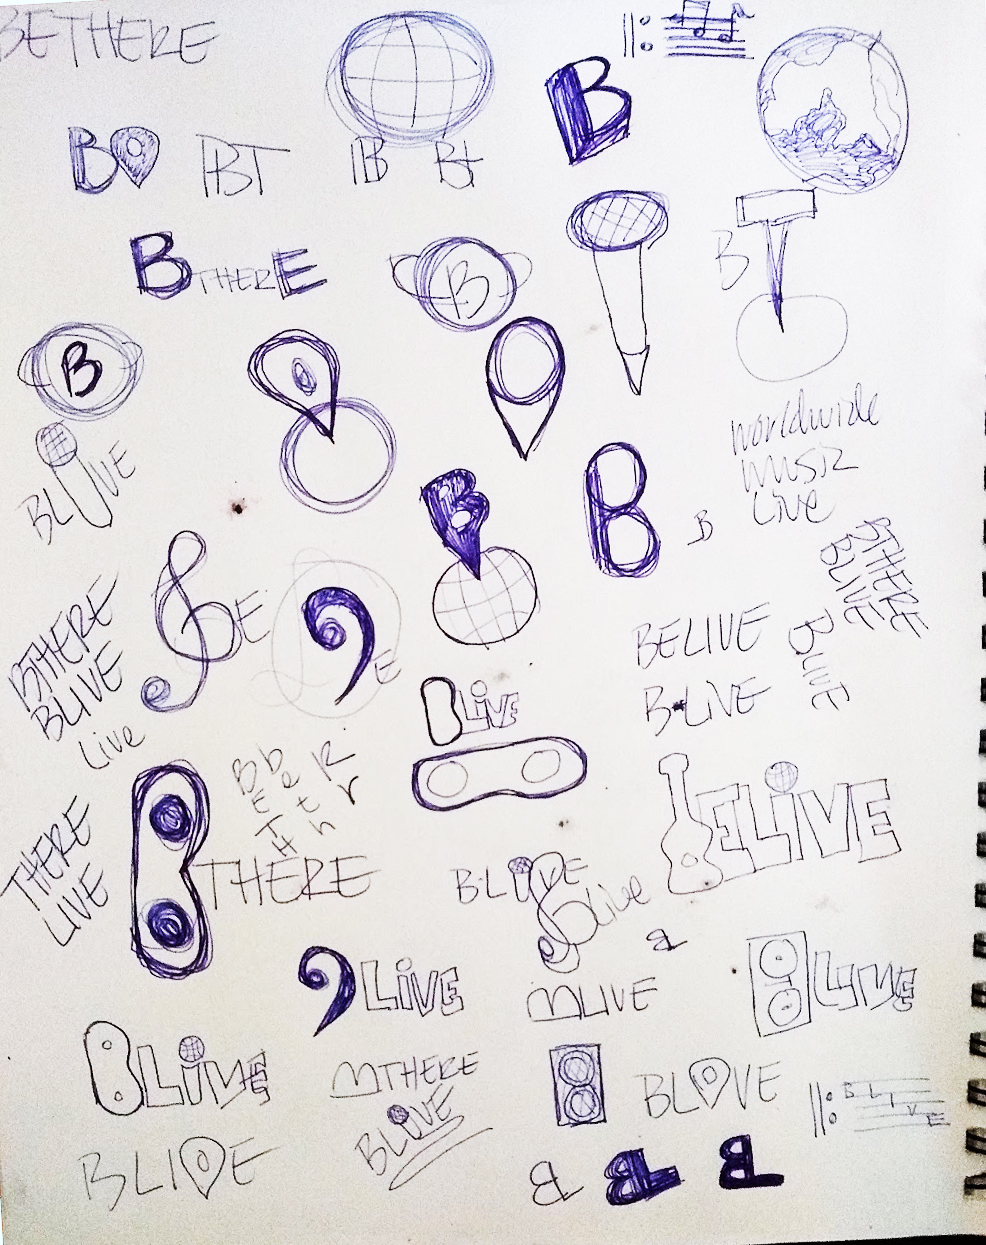 BETHERE
B
B
BT
B
Bt
BTHERE
B
B
T
B
BLIVE
worldwide
music
Live
B
B
B
E
E
BTHERE
BLIVE
Live
BTHERE
BLIVE
BLIVE
BELIVE
B-LIVE
BLIVE
THERE
LIVE
BTHERE
B b R
E e r
T t
H h
BELIVE
B-LIVE
Blive
BL
LIVE
MLIVE
LIVE
BLIVE
MTHERE
BLIVE
BLOVE
BLIVE
BLIVE
BL
BL
BL